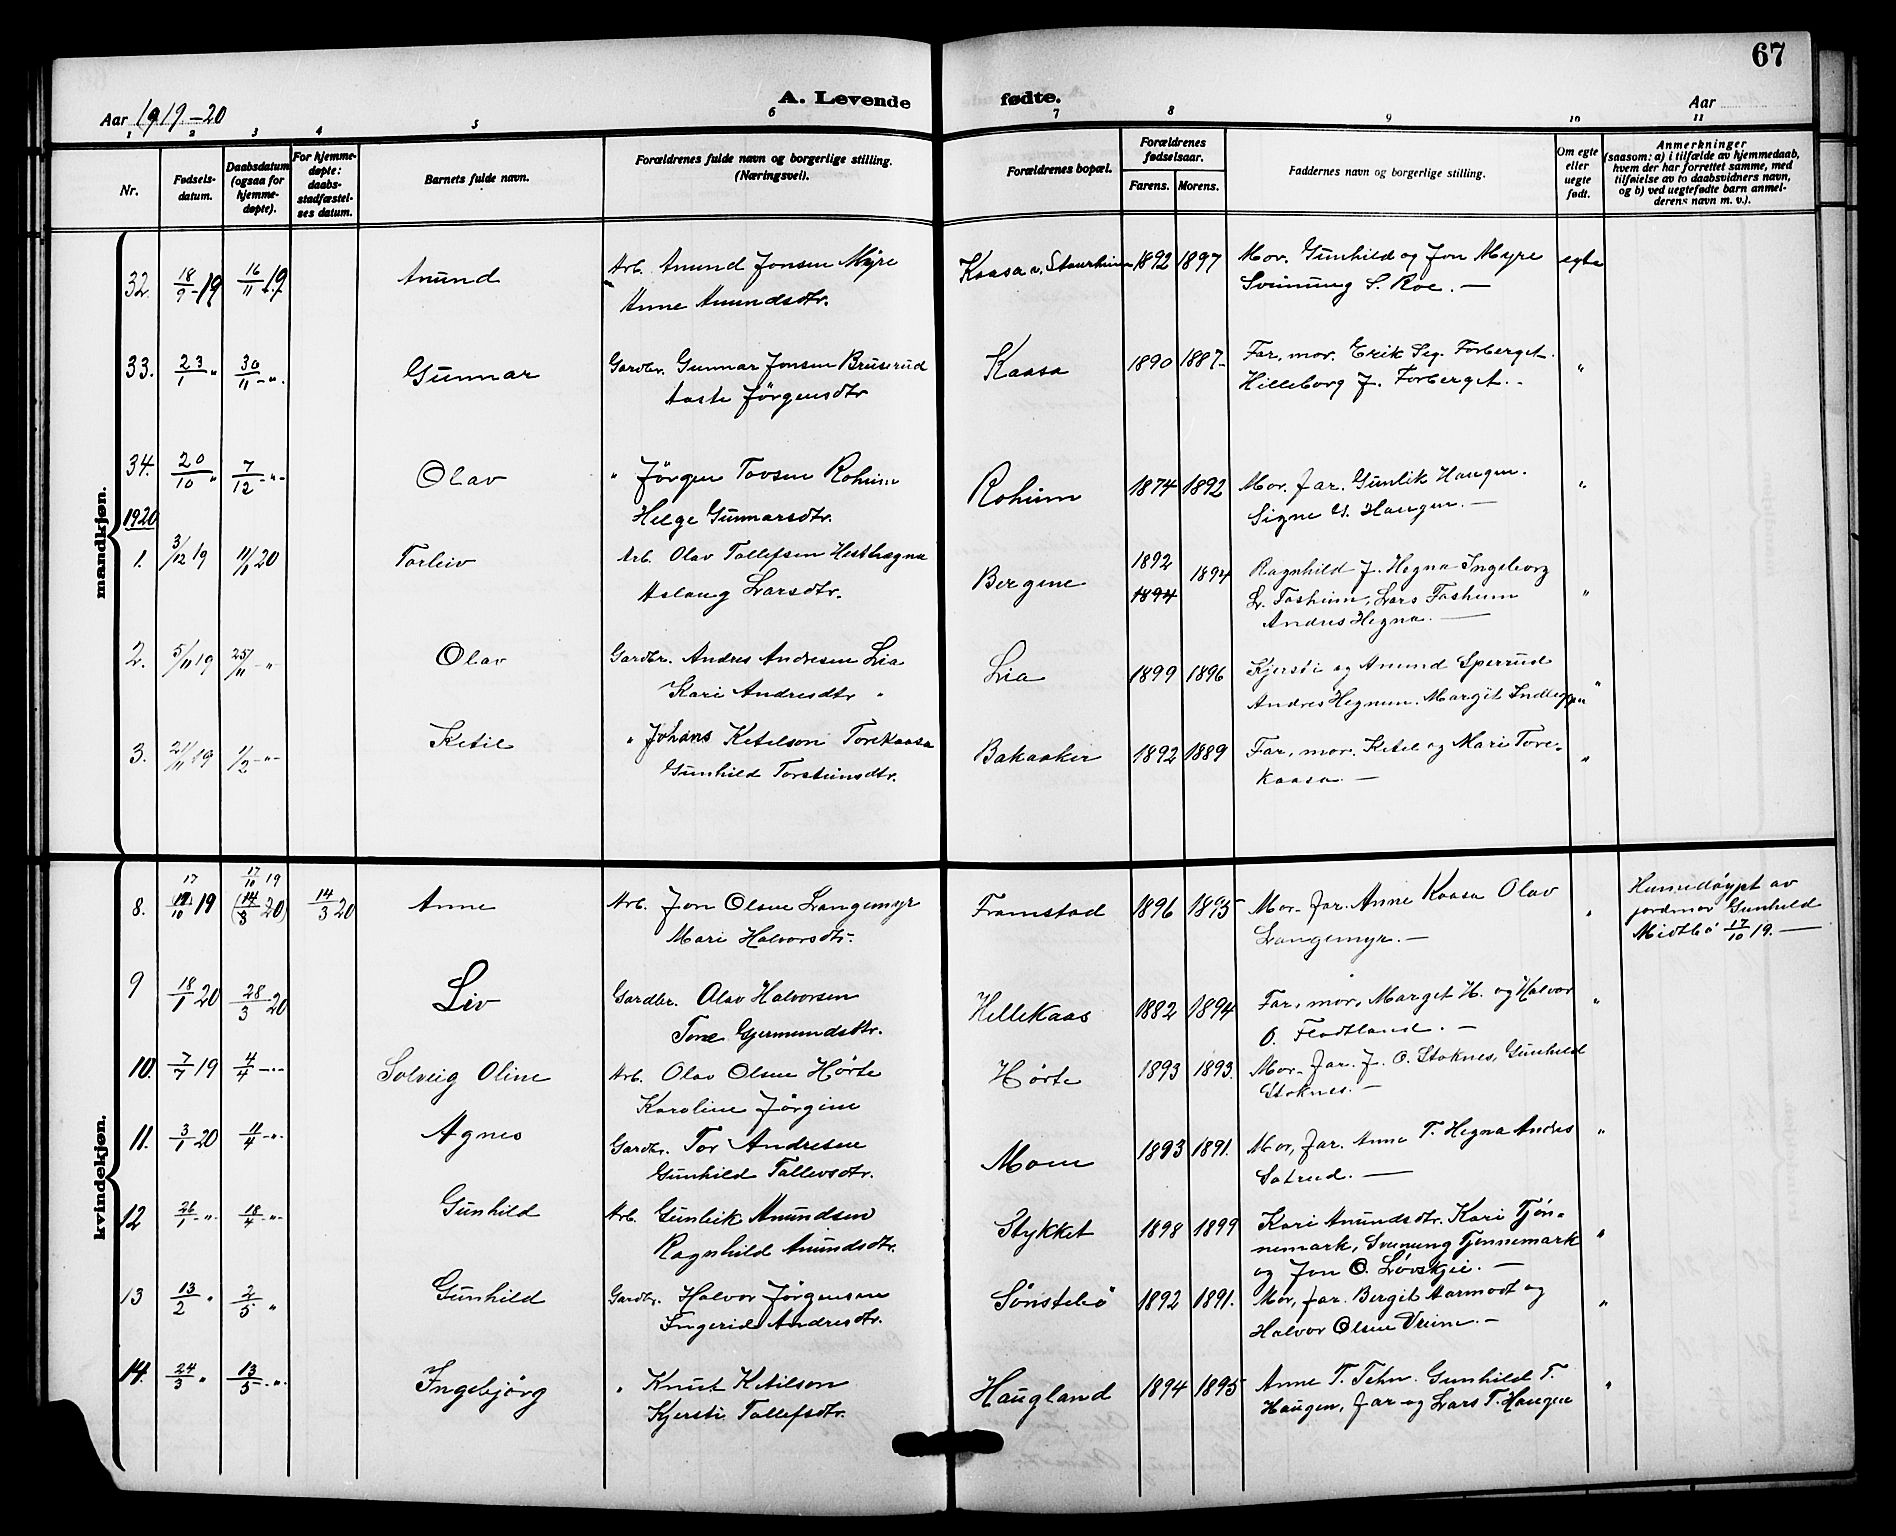 67
A. Levende fødte.
Aar 1919.-20
Aar
1 2 3 4 5 6 7 8 9 10 11
Nr.
Fødsels-
datum.
Daabsdatum
(ogsaa for
hjemme-
døpte).
For hjemme-
døpte:
daabs-
stadfæstel-
ses datum.
Barnets fulde navn.
Forældrenes fulde navn og borgerlige stilling.
(Næringsvei).
Forældrenes bopæl.
Forældrenes
fødselsaar.
Farens. Morens.
Faddernes navn og borgerlige stilling.
Om egte
eller
uegte
født.
Anmerkninger
(saasom: a) i tilfælde av hjemmedaab,
hvem der har forrettet samme, med
tilføielse av to daabsvidners navn,
og b) ved uegtefødte barn anmel-
derens navn m. v.).
mandkjøn.
32. 18/9-19 16/11 19 Anund Arb. Anund Jonsen Myre Kaasa 1892 1897 Mor. Gunhild og Jon Myre egte
Anne Anundsdtr. Sveinung S. Roe. —
33. 23/1 " 30/11 -"- Gunnar Gardbr. Gunnar Jonsen Bruserud Kaasa 1890 1887- Far, mor. Erik Seg. Forberget. "
Aaste Jörgensdtr Hilleborg J. Forberget. -
34. 20/10 " 7/12 -"- Olav " Jörgen Tovsen Roheim Roheim 1874 1892 Mor. far. Gunlik Haugen. "
Helge Gunnarsdtr. Signe Haugen. —
1920
1. 3/12 19 11/1 20 Torleiv Arb. Olav Tollefsen Hesthagna Bergene 1892 1894 1894 Ragnhild J. Hegna Ingeborg "
Aslaug Larsdtr. L. Tosheim, Lars Tosheim
Andres Hegna. —
2. 5/11 19 25/11 -"- Olav Gardbr. Andres Andresen Lia Lia 1899 1896 Kjersti og Anund Sperrud "
Kari Andresdtr " Andres Hegnum. Margit
3. 21/11 19 1/2 -"- Ketil " Johans Ketelson Torekaasa Bakaaker 1892 1889 Far, mor. Ketel og Mari Tore- "
Gunhild Torsteinsdtr. kaasa. —
kvindekjøn.
8. 17 17/10 19 17/10 19 (14/3 20) 14/3 20 Anne Arb. Jon Olsen Langemyr Framstad 1896 1895 Mor. far. Anne Kaasa Olav " Heimedöypt av
Mari Halvorsdtr. Langemyr. — jordmor Gunhild
Midtbö 17/10 19. —
9 18/1 20 28/3 20 Liv Gardbr. Olav Halvorsen Hellekaas 1882 1894 Far, mor, Marget H. og Halvor "
Tone Gjermundsdtr. O. Flodtland. —
10. 7/7 19 4/4 -"- Solveig Oline Arb. Olav Olsen Hørte Hørte 1893 1893. Mor. Far. J. O. Stoknes, Gunhild
Karoline Jörgine Stoknes. —
11. 3/1 20 11/4 -"- Agnes Gardbr. Tor Andresen Moen 1893 1891. Mor, far. Anne T. Hegna Andres "
Gunhild Tallevsdtr. Satrud. —
12 26/1 -"- 18/4 -"- Gunhild Arb. Gunleik Anundsen Stykket 1898 1899 Kari Anundsdtr. Kari Tjön- "
Ragnhild Anundsdtr. nemark, Sveinung Tjønnemark
og Jon O. Løvskjei. —
13 13/2 " 2/5 " Gunhild Gardbr. Halvor Jørgensen Sønstebø 1892 1891. Mor, far. Bergit Aarmodt og "
Ingerid Andresdtr. Halvor Olsen Veum. —
14. 24/3 " 13/5 -"- Ingebjörg " Knut Ketilson Haugland 1894 1895 Anne T. Gunhild T. "
Kjersti Tallefsdtr. Haugen, far og Lars T. Haugen